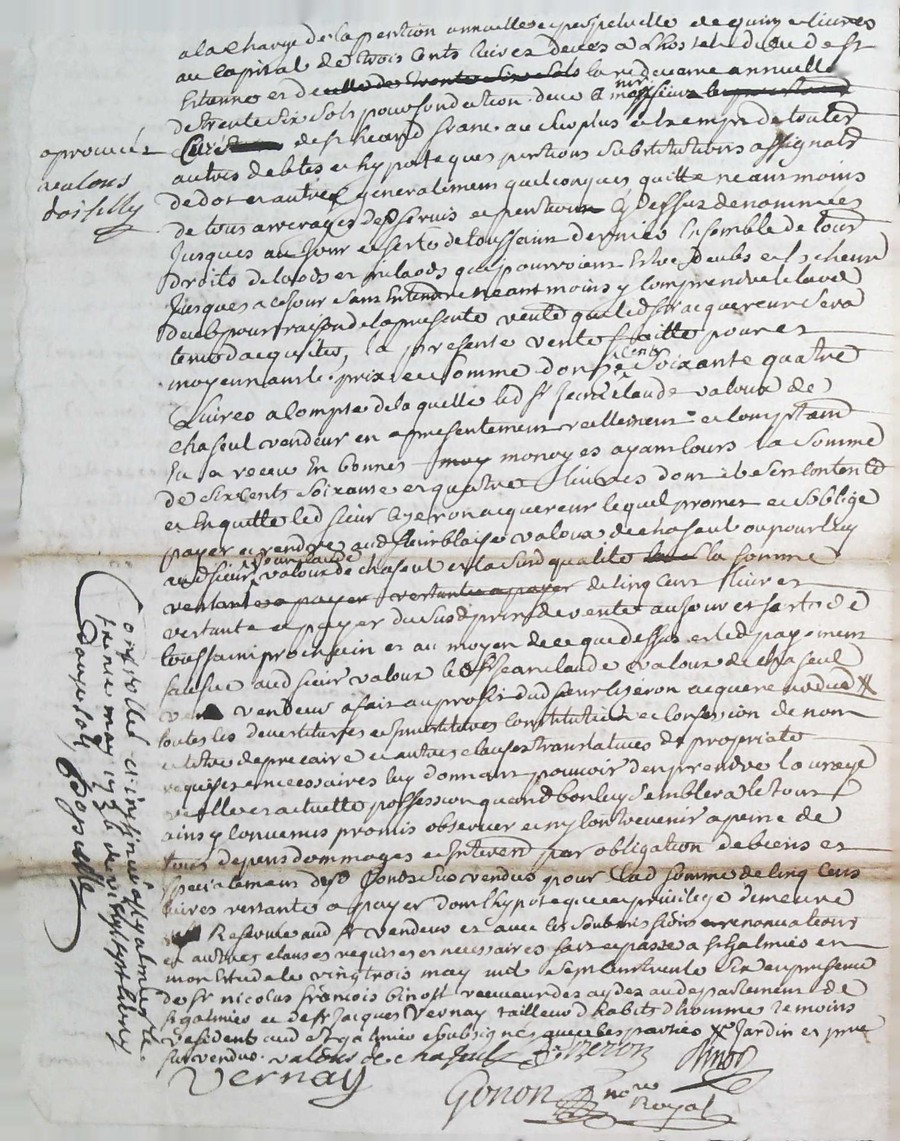 a la charge de la pention annuelle et perpetuelle de quinze livres
au capital de trois cents livres deües a lhostel dieu de st
Etienne et de celle de trente six sols la redevance annuelle
de trente six sols pour fondation deue a messieurs
Curé de st heand franc au surplus et exempt de toutes
autres debtes et hypoteques pentions substitutions assignats
de dot et autres generalement quelconques quitte neantmoins
de tous arrerages des servis et pention cy dessus denommées
jusques au jour et feste de toussaint dernier Ensemble de tous
droits de lods et milods qui pourroient Estre deubs et escheus
jusques a ce jour sans Entendre neantmoins y comprendre le lod
deub pour raison de la presente vente que led sr acquereur sera
tenu d'acquitter, la presente vente faitte pour et
moyennant le prix et somme d'onze cents soixante quatre
Livres a compte de laquelle led sr Jean claude valous de
chaseul vendeur en a presentement reellement et comptant
Eu et receu En bonnes monoyes ayant cours la somme
de six cents soixante et quatre livres dont il se contente
et En quitte led sieur Lizeron acquereur lequel promet et s'oblige
payer et rendre aud sieur blaise valous de chaseul ou pour luy
aud sieur Jean claude valous de chaseul en la susd qualité la somme
restante a payer restante a payer de cinq cent livres
restante a payer du susd prix de vente au jour et feste de
toussaint prochain et au moyen de ce que dessus et led payement
fait aud sieur valous led sr Jean claude valous de chaseul
vendeur a fait au proffit dud sieur Lizeron acquereur
toutes les devestitures et investitures constitution et confession de nom
et titre de precaire et autres clauses translatives de proprieté
requises et necessaires luy donnant pouvoir d'en prendre la vraye
reelle et actuelle possession quand bon luy semblera le tout
ainsy convenus promis observer et n'y contrevenir a peine de
tous depens dommages et interest par obligation de biens et
specialement desd fonds sus vendus pour lad somme de cinq cens
livres restante a payer dont l'hypoteque et privilege demeure
Reservé aud sr vendeur et avec les soubmissions renonciations
et autres clauses requises et necessaires fait et passé a st galmier en
mon Etude le vingt trois may mil sept cent trente six en presence
de sr nicolas françois binost receveur des aydes au departement de
st galmier et de sr Jacques Vernay tailleur d'habits d'hommes temoins
residents aud st galmier et soubsignés avec les parties X Jardin et pré
sus vendus. valous de chaseul Lizeron Binost
Vernay
Gonon nore
Royal
aprouvés
valous
Controllé et insinué a st galmier le
trente may 1736